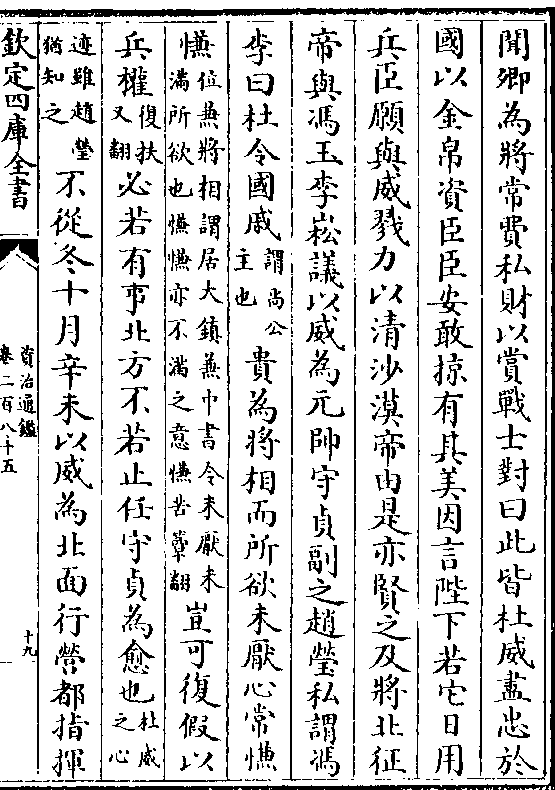 聞卿為將常費私財以賞戰士對曰此皆杜威盡忠於
國以金帛資臣臣安敢掠有其美因言陛下若它日用
兵臣願與威戮力以清沙漠帝由是亦賢之及將北征
帝與馮玉李崧議以威為元帥守貞副之趙瑩私謂馮
李曰杜令國戚謂尚公主也貴為將相而所欲未厭心常慊
慊位兼將相謂居大鎮兼中書令未厭未滿所欲也慊慊亦不滿之意慊苦簟翻豈可復假以
兵權復扶又翻必若有事北方不若止任守貞為愈也杜威之心
迹雖趙瑩猶知之不從冬十月辛未以威為北面行營都指揮
欽定四庫全書
資治通鑑
卷二百八十五
十九